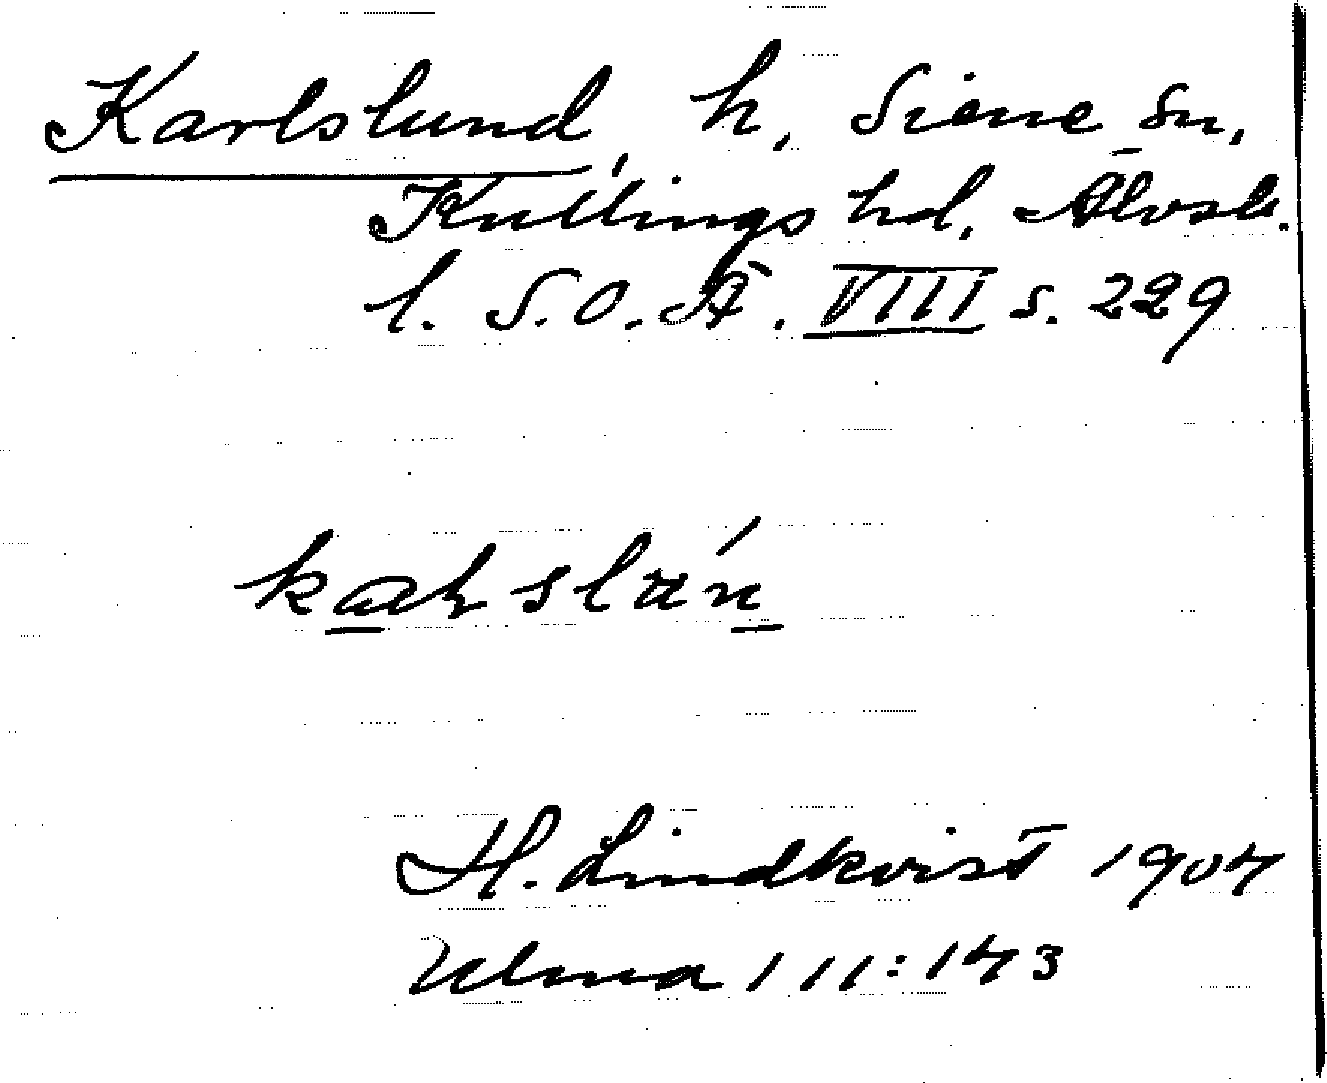 Karlslund, h, Siene sn,
Kullings hd, Älvsb.
l. S.O.Ä. VIII s. 229
H. Lindkvist 1904
Ulma 111:143